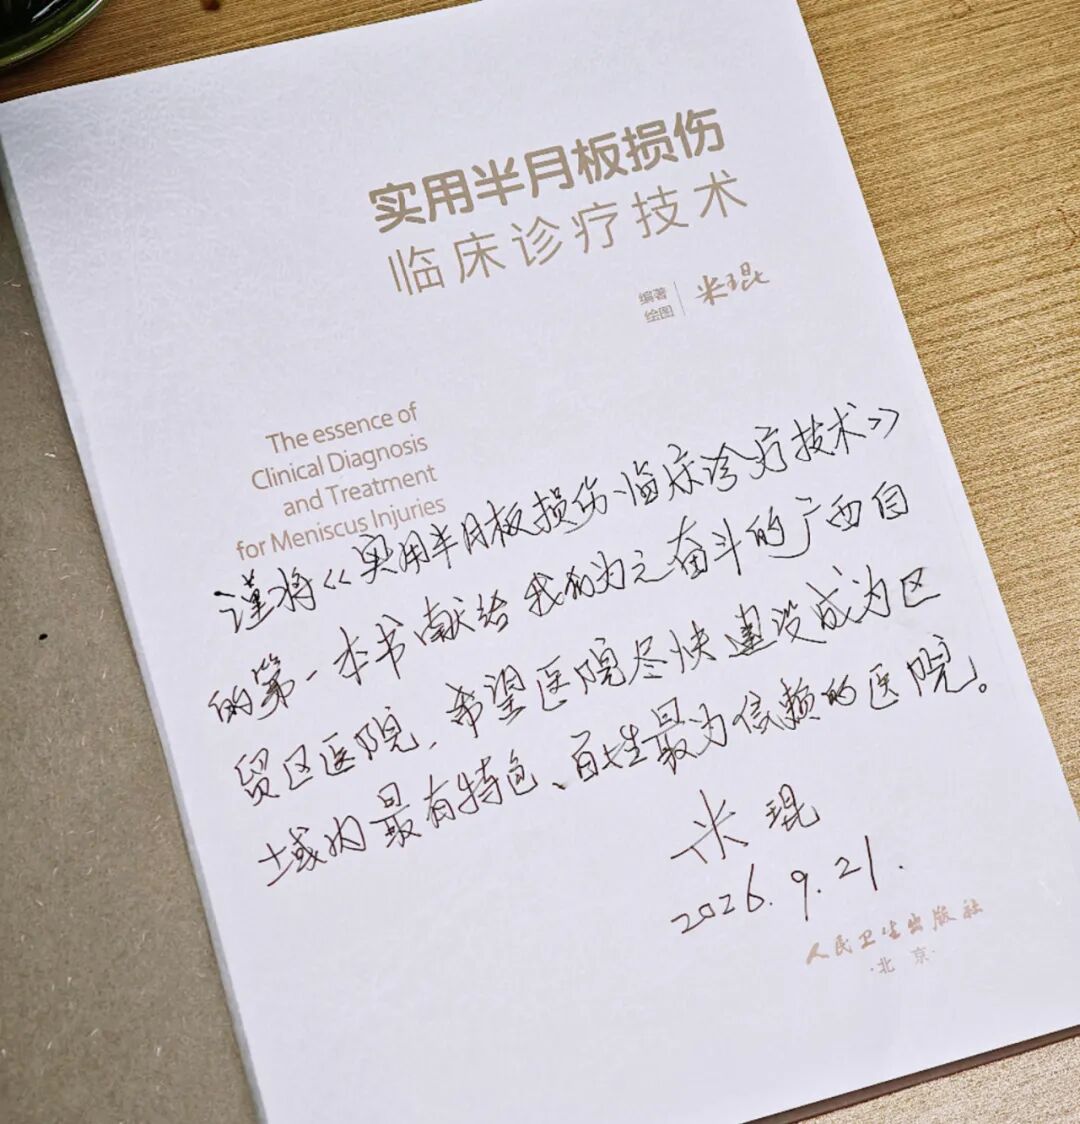 实用半月板损伤
临床诊疗技术
编著
绘图
米琨
The essence of
Clinical Diagnosis
and Treatment
for Meniscus Injuries
谨将《实用半月板损伤临床诊疗技术》
的第一本书献给我们为之奋斗的广西自
贸区医院,希望医院尽快建设成为区
域内最有特色、百姓最为信赖的医院。
米琨
2026.9.21.
人民卫生出版社
·北 京·